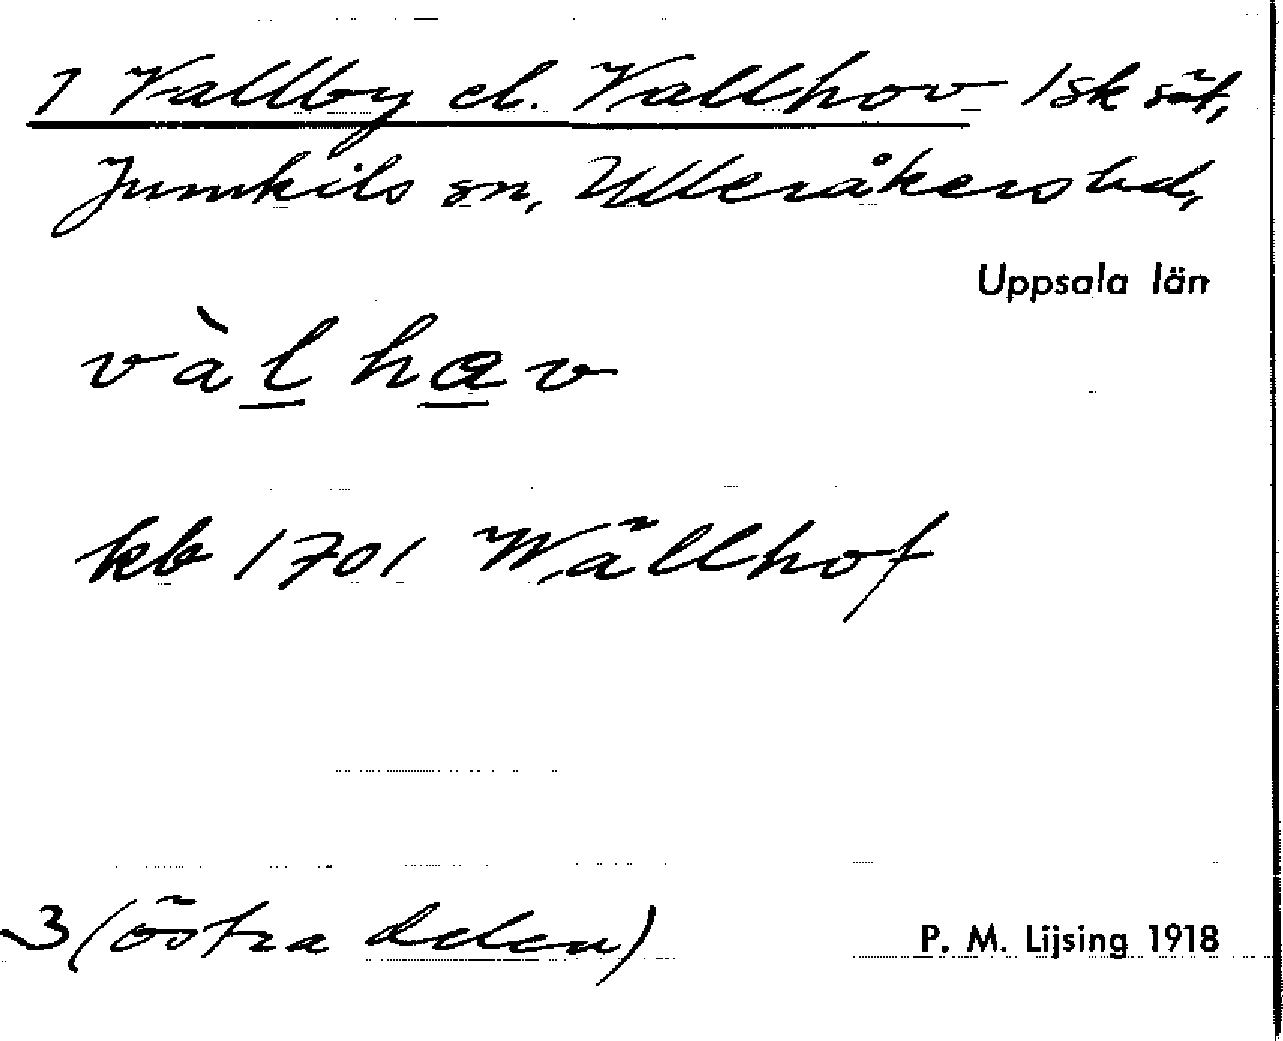 1 Vallby el. Vallhov 1 sk sät,
Jumkils sn, Ulleråkers hd,
Uppsala län
vàlhav
kb 1701 Wällhof
3 (östra delen)
P. M. Lijsing 1918